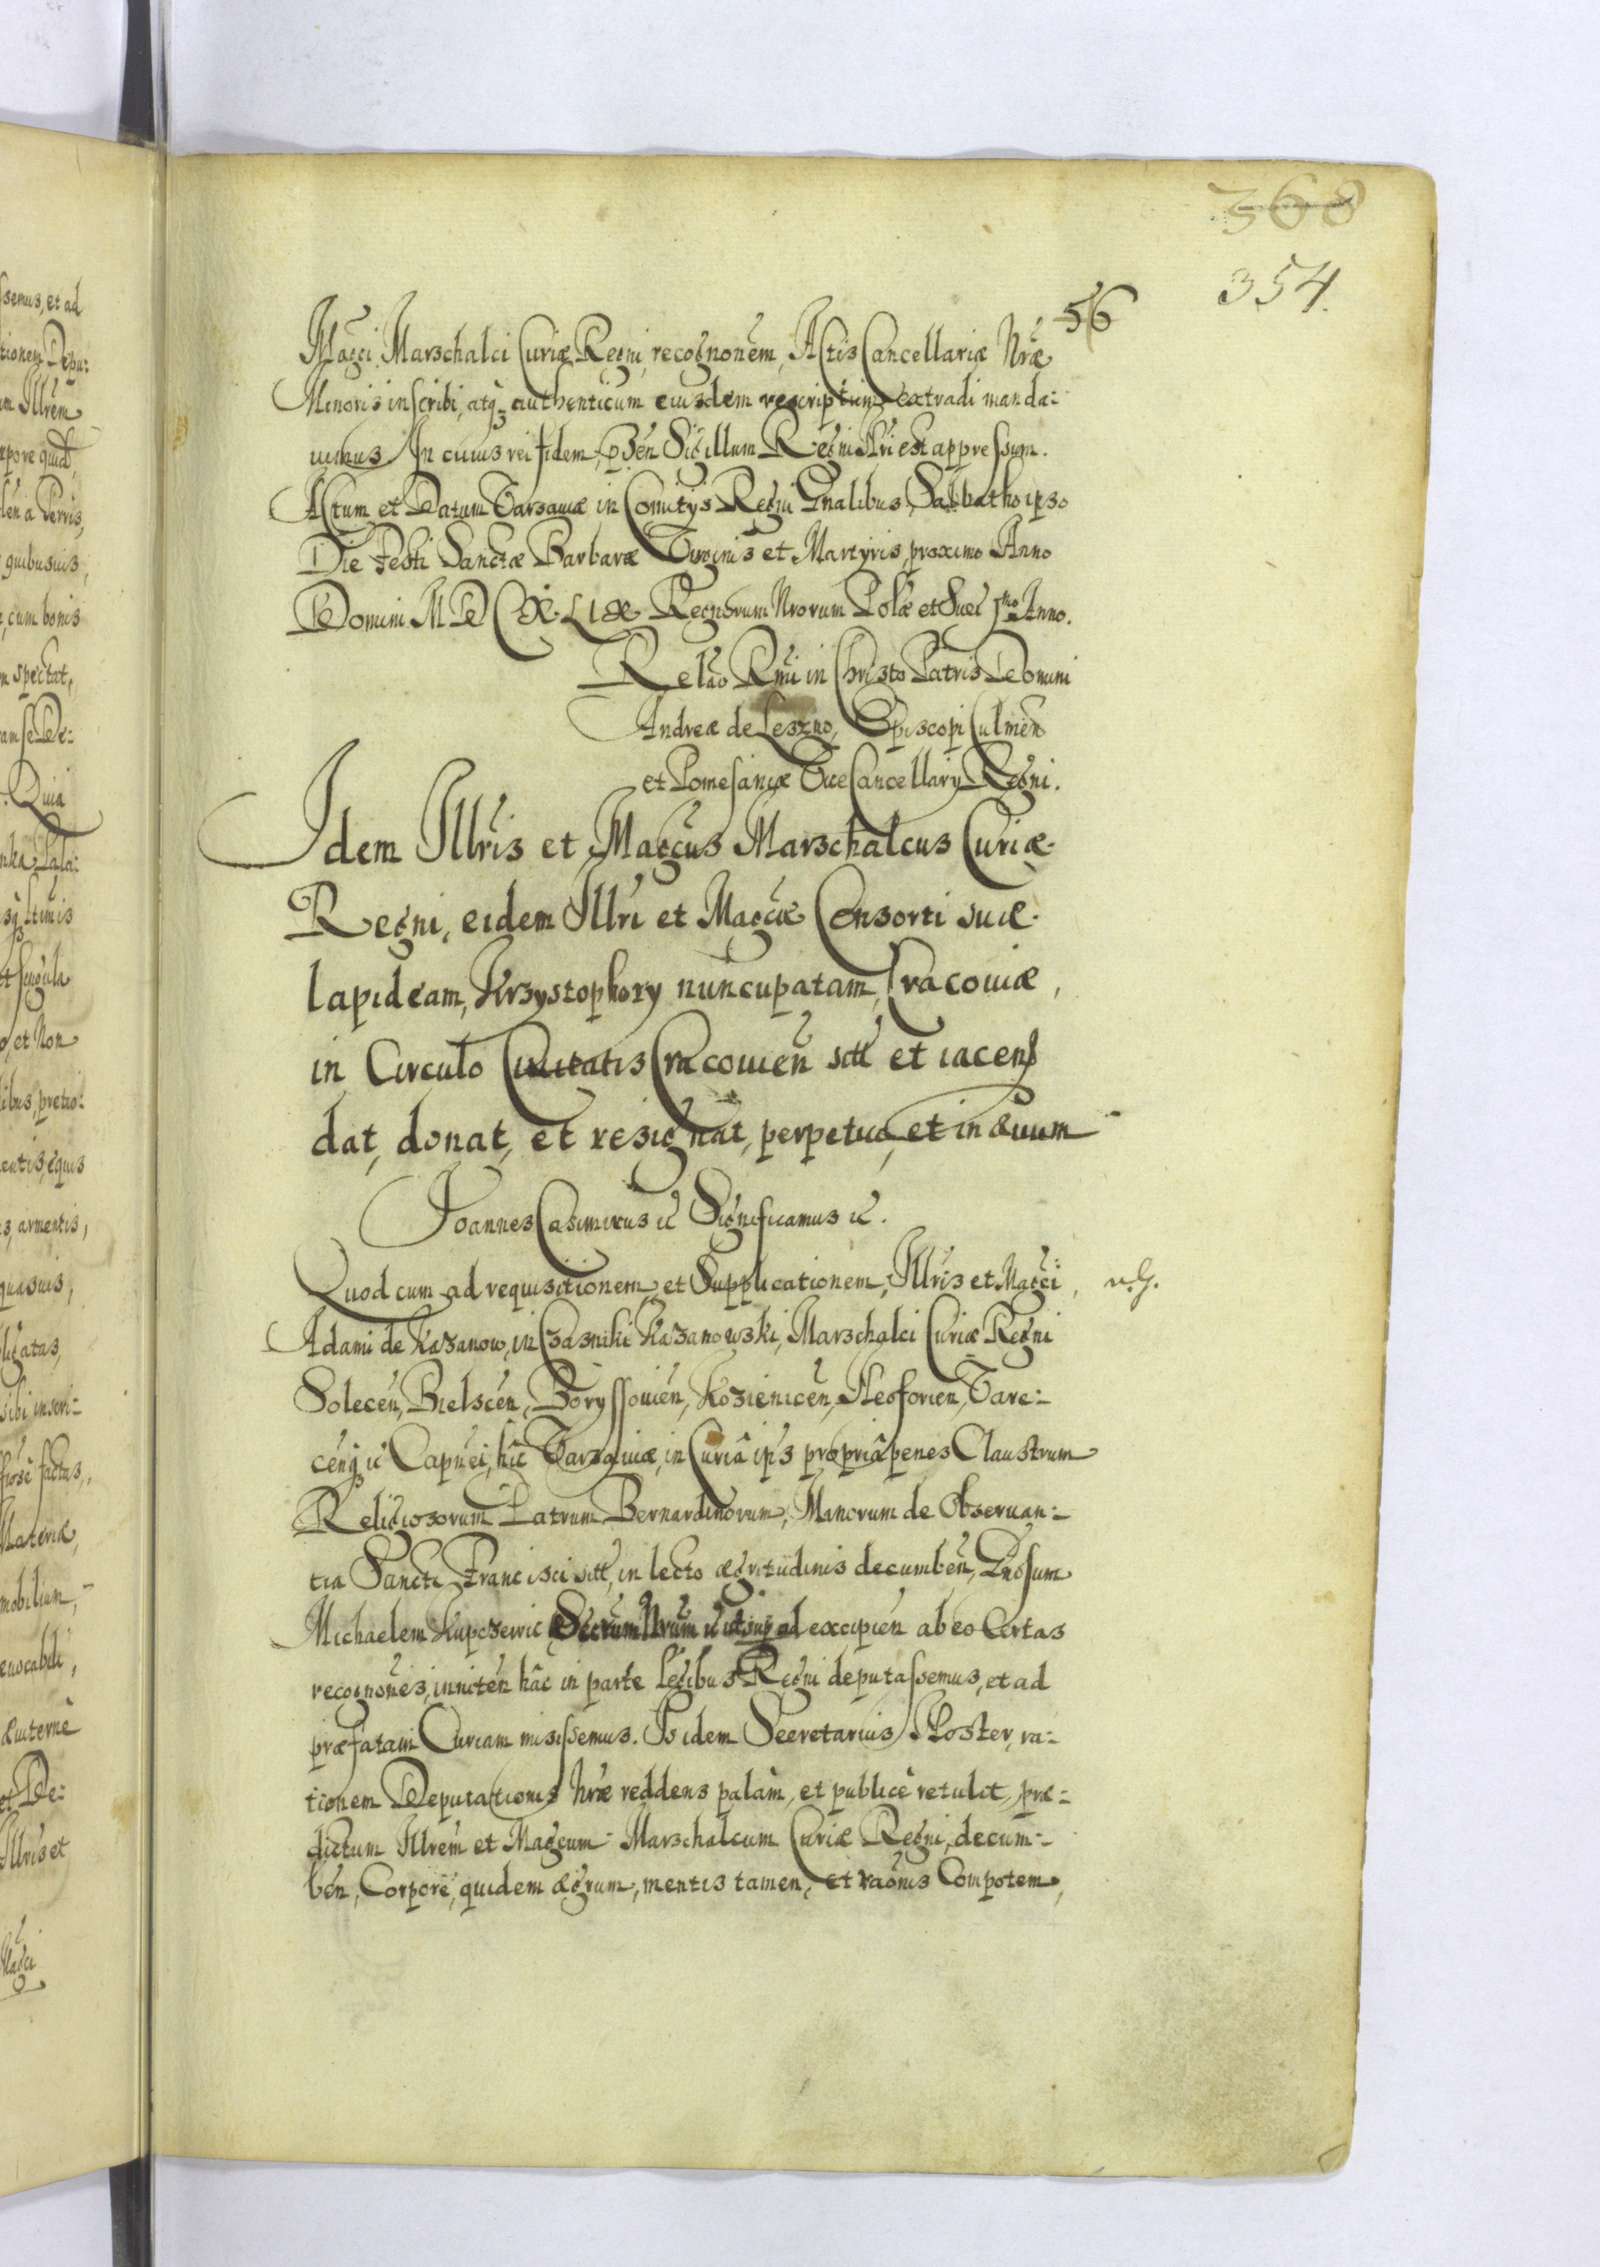 368
354.
56
Magci Marschalci Curiæ Regni, recognonem, Actis Cancellariæ Nræ
Minoris inscribi, atq3 authenticum eiusdem rescriptum extradi manda:
uimus In cuius rei fidem, pšen Sigillum Regni Nri est appressum.
Actum et Datum Varsauiæ in Comitijs Regni Gnalibus, Sabbatho ipso
Die Festi Sanctæ Barbaræ Virginis et Martyris proximo Anno
Domini M D C X L I X Regnorum Nrorum Polæ et Suec 1mo Anno.
Relão Rmi in Christo Patris Domini
Andreæ de Leszno, Episcopi Culmen
et Pomesaniæ ViceCancellarij Regni.
Idem Illris et Magcus Marschalcus Curiæ
Regni, eidem Illri et Magcæ Consorti suæ
lapideam, Krzysztophory nuncupatam, Cracoviæ,
in Circulo Civitatis Cracouien sitt et iacen
dat, donat, et resignat, perpetuo, et in æuum
Joannes Casimirus ic Significamus ic.
Quod cum ad requisitionem, et Supplicationem, Illris et Magci,
Adami de Kazanow, in Czasniki Kazanowski, Marschalci Curiæ Regni
Solecen, Bielscen, Boryssouien, Kozienicen, Neoforien, Vare:
cenq3 ic Capnei, hîc Varsauiæ, in Curiâ ips propriâ penes Claustrum
Religiosorum Patrum Bernardinorum, Minorum de Obseruan:
tia Sancti Francisci sitt, in lecto ægritudinis decumben, Gnosum
Michaelem Kupczewic Secrum Nrum ad excipien ab eo Certas
recognones, inniten hâc in parte Legibus Regni deputassemus, et ad
præfatam Curiam misissemus. Is idem Secretarius Noster, ra:
tionem Deputationis Nræ reddens palàm, et publicè retulit, præ:
dictum Illrem et Magcum Marschalcum Curiæ Regni, decum:
ben, Corpore, quidem ægrum, mentis tamen, et raonis Compotem,